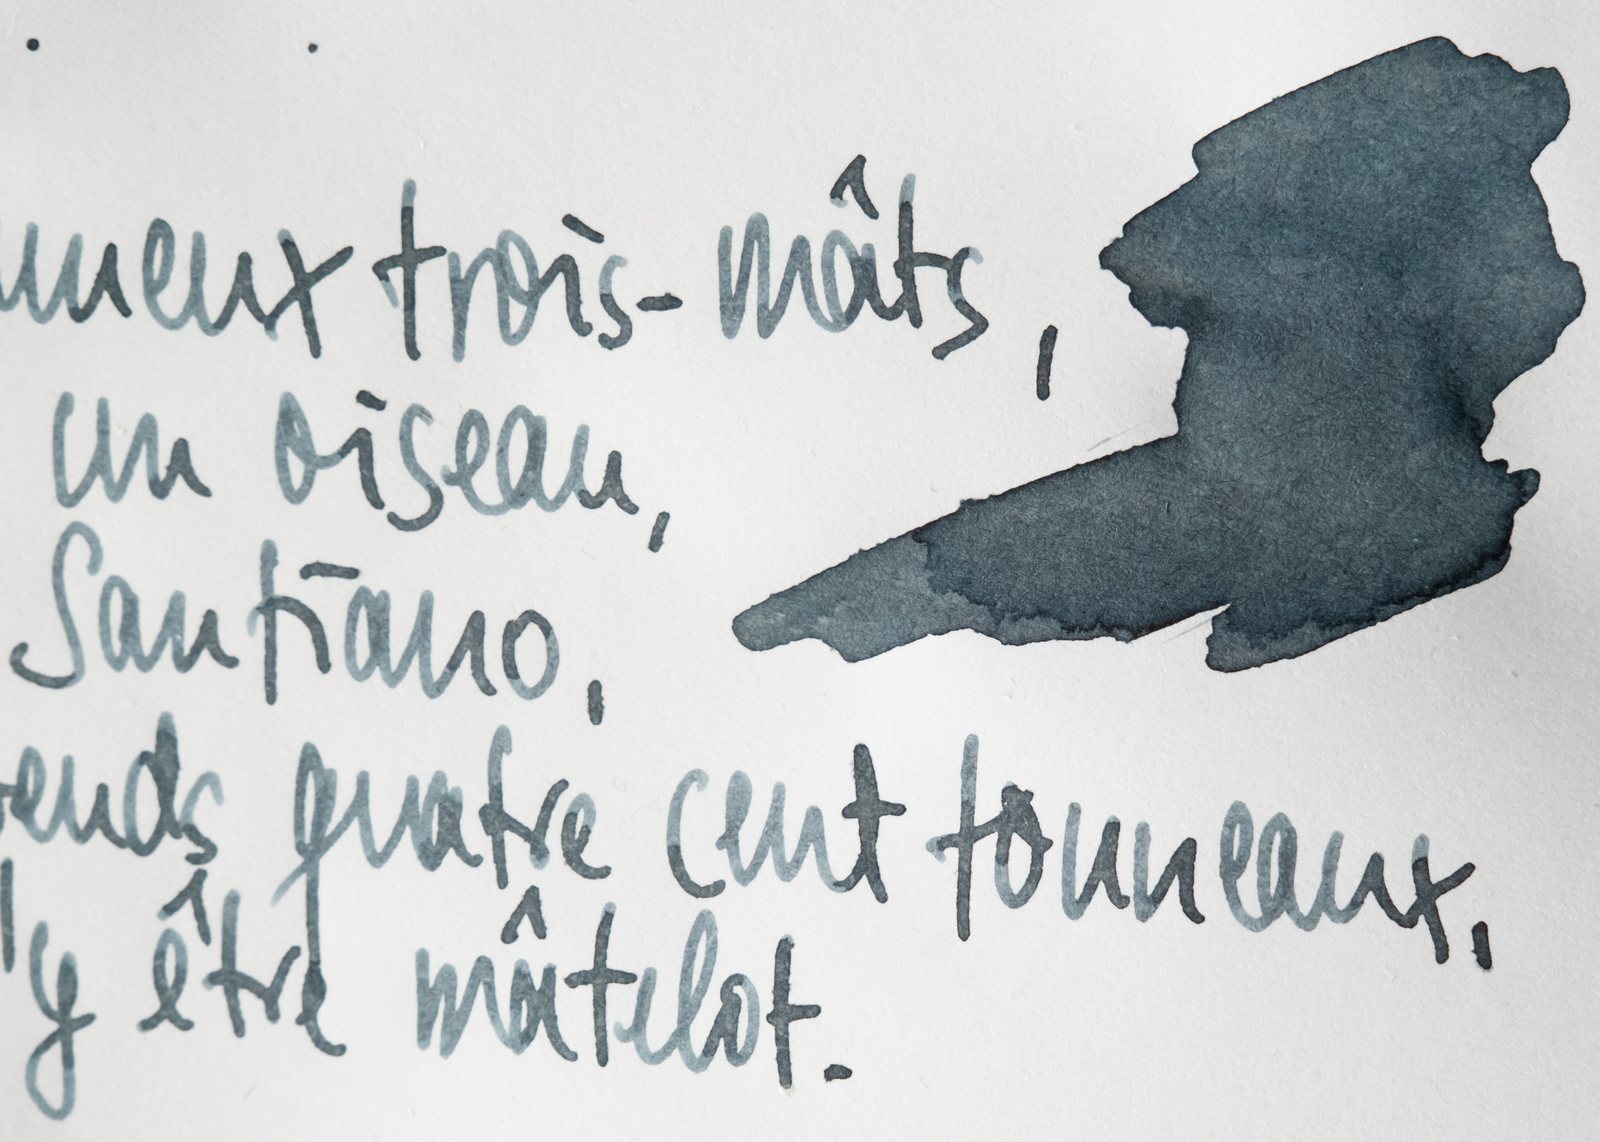 meux trois-mâts,
un oiseau,
Santiano,
euds quatre cent tonneaux,
'y être mâtelot.